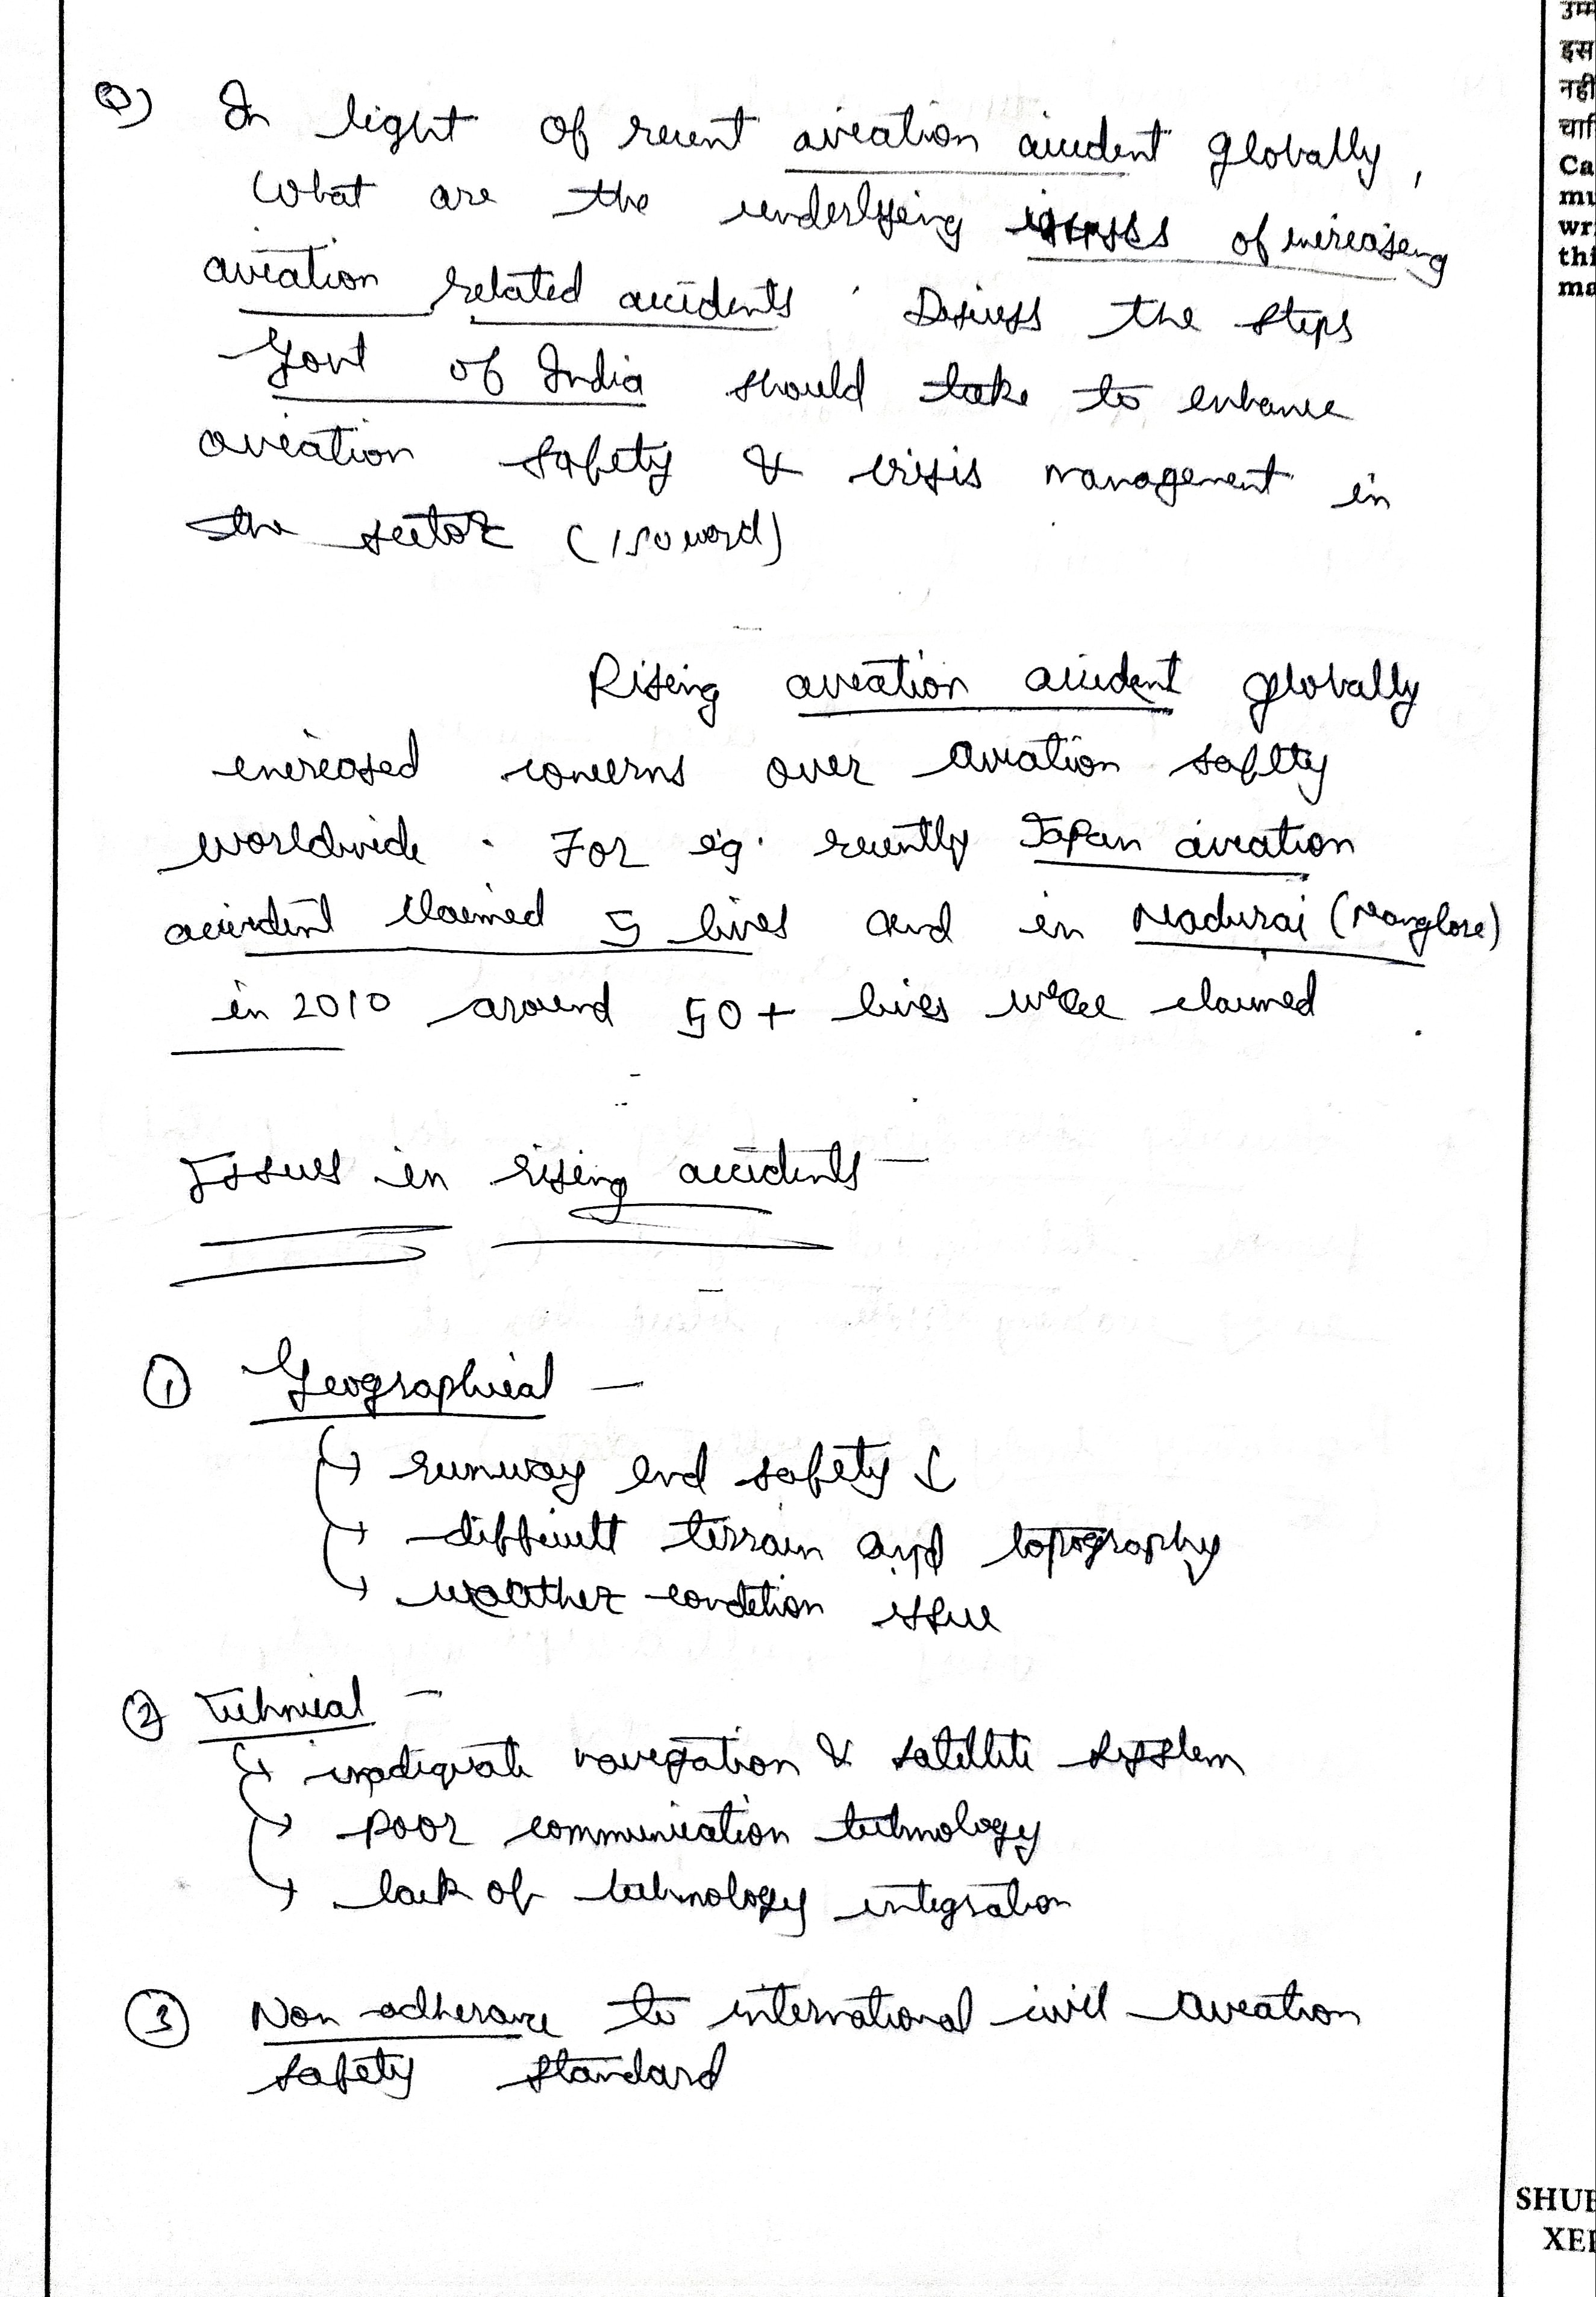 Q) In light of recent aviation accident globally,
What are the underlying issues of increasing
aviation related accidents. Discuss the steps
Govt of India should take to enhance
aviation safety & crisis management in
the sector (150 word)
Rising aviation accident globally
increased concerns over aviation safety
worldwide. For eg. recently Japan aviation
accident claimed 5 lives and in Madurai (Manglore)
in 2010 around 50+ lives were claimed.
Issues in rising accidents —
① Geographical —
↳ runway end safety ↓
→ difficult terrain and topography
↳ weather condition issue
② Technical —
↳ inadequate navigation & satellite system
→ poor communication technology
→ lack of technology integration
③ Non adherance to international civil aviation
safety standard
उम्म
इस
नहीं
चाहि
Ca
mu
wri
thi
ma
SHUB
XEE